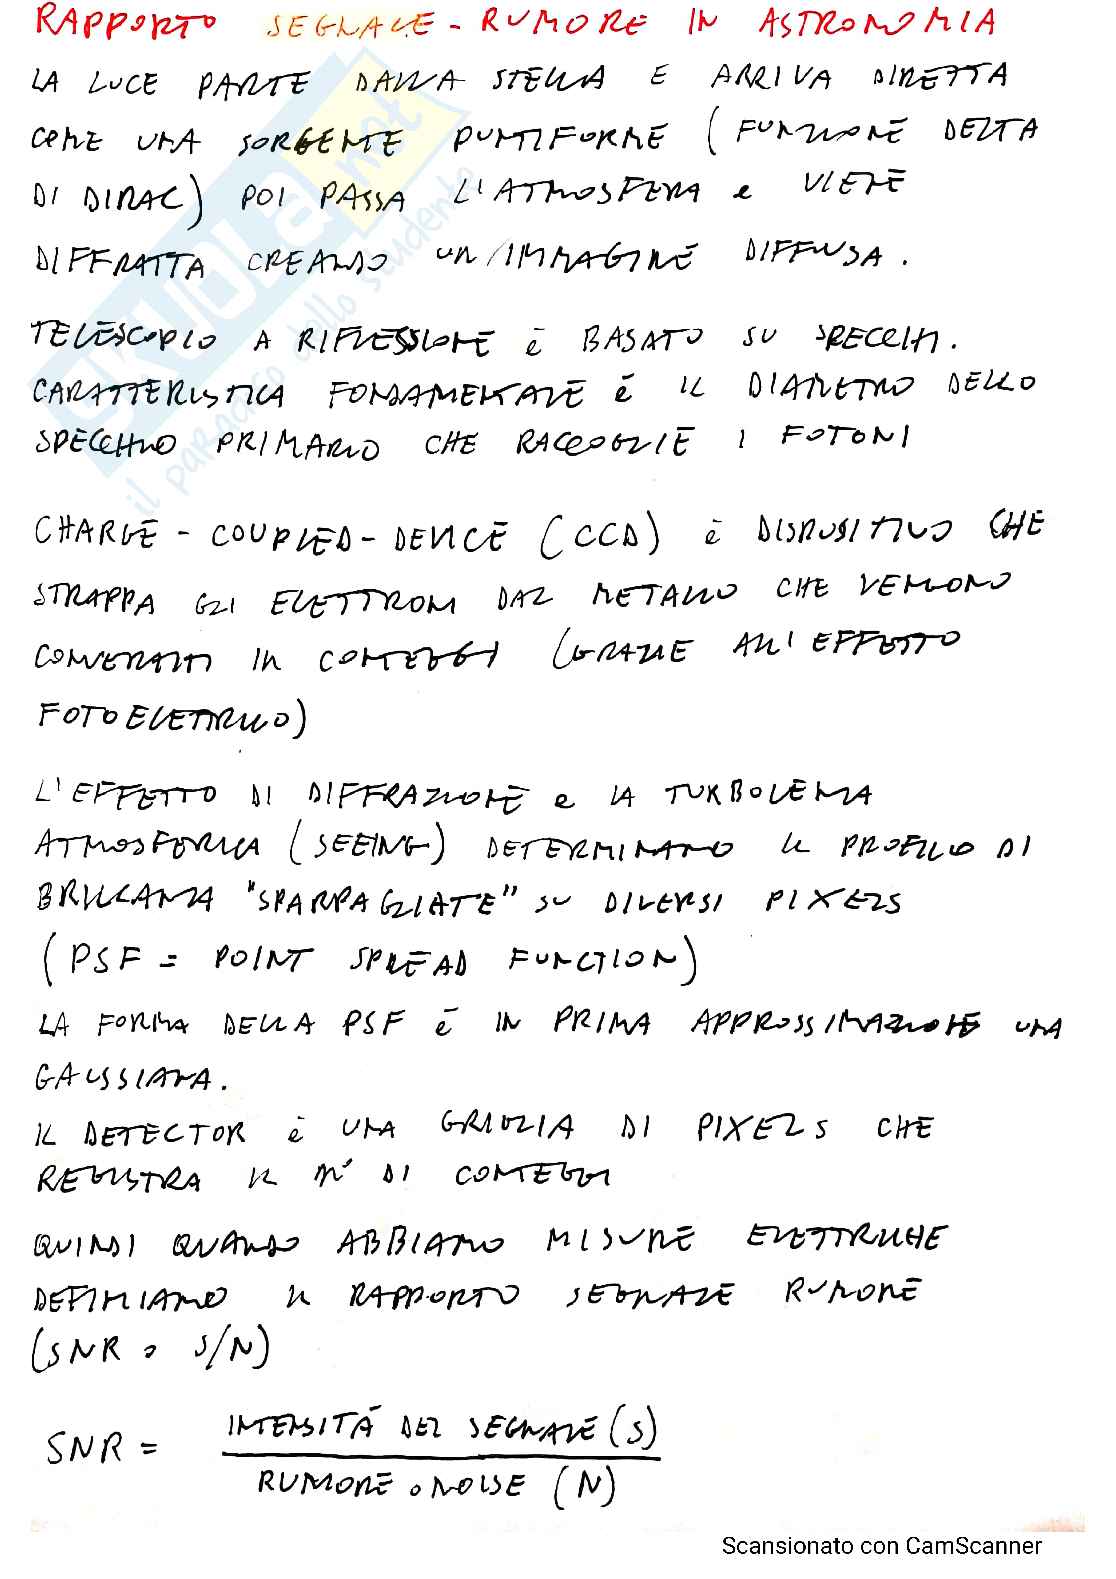 RAPPORTO SEGNALE - RUMORE IN ASTRONOMIA
LA LUCE PARTE DALLA STELLA E ARRIVA DIRETTA
COME UNA SORGENTE PUNTIFORME (FUNZIONE DELTA
DI DIRAC) POI PASSA L'ATMOSFERA e VIENE
DIFFRATTA CREANDO UN'IMMAGINE DIFFUSA.
TELESCOPIO A RIFLESSIONE è BASATO SU SPECCHI.
CARATTERISTICA FONDAMENTALE è IL DIAMETRO DELLO
SPECCHIO PRIMARIO CHE RACCOGLIE I FOTONI
CHARGE - COUPLED - DEVICE (CCD) è DISPOSITIVO CHE
STRAPPA GLI ELETTRONI DAL METALLO CHE VENGONO
CONVERTITI IN CONTEGGI (GRAZIE ALL'EFFETTO
FOTOELETTRICO)
L'EFFETTO DI DIFFRAZIONE e LA TURBOLENZA
ATMOSFERICA (SEEING) DETERMINANO IL PROFILO DI
BRILLANZA "SPARPAGLIATE" SU DIVERSI PIXELS
(PSF = POINT SPREAD FUNCTION)
LA FORMA DELLA PSF è IN PRIMA APPROSSIMAZIONE UNA
GAUSSIANA.
IL DETECTOR è UNA GRIGLIA DI PIXELS CHE
REGISTRA IL n° DI CONTEGGI
QUINDI QUANDO ABBIAMO MISURE ELETTRICHE
DEFINIAMO IL RAPPORTO SEGNALE RUMORE
(SNR o S/N)
SNR = INTENSITÀ DEL SEGNALE (S)
RUMORE o NOISE (N)
SKUOLA.net
il paradiso dello studente
Scansionato con CamScanner